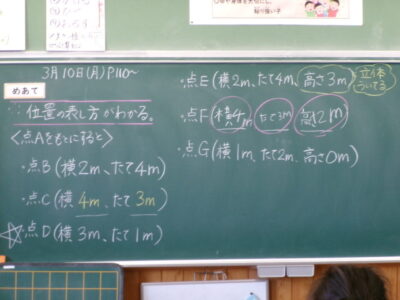 3月10日(月)P110〜
めあて
位置の表し方がわかる。
<点Aをもとにすると>
・点B(横2m、たて4m)
・点C(横 4m、たて 3m)
☆点D(横 3m、たて1m)
・点E(横2m、たて4m、高さ3m)
立体
ついてる
・点F(横4m、たて3m、高さ2m)
・点G(横1m、たて2m、高さ0m)